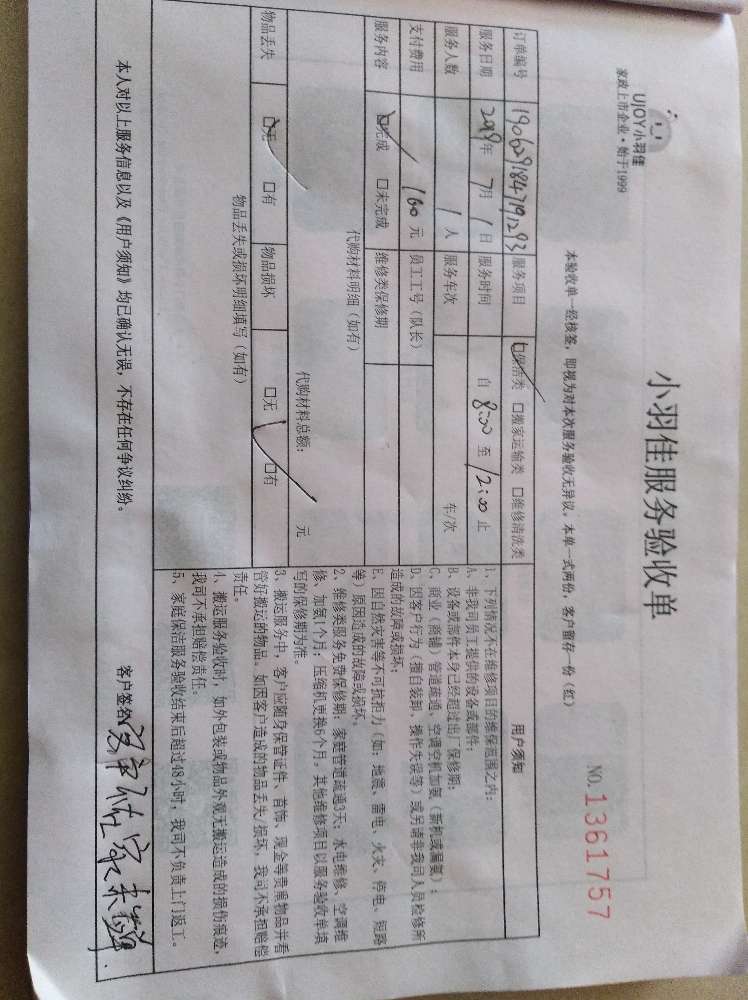 UJOY小羽佳
家政上市企业·始于1999
小羽佳服务验收单
NO.1361757
本验收单一经核签，即视为对本次服务验收无异议，本单一式两份，客户留存一份（红）
订单编号 1906291847191293 服务项目 保洁类 搬家运输类 维修清洗类
服务日期 2019年 7月 1日 服务时间 自 8:00 至 12:00 止
服务人数 1人 服务车次 车/次
支付费用 160元 员工工号（队长）
服务内容 完成 未完成 维修类保修期
代购材料明细（如有）
代购材料总额： 元
物品丢失 无 有 物品损坏 无 有
物品丢失或损坏明细填写（如有）
用户须知
1、下列情况不在维修项目的维保范围之内：
A、非我司员工提供的设备或部件；
B、设备或部件本身已经超过出厂保修期；
C、商业（商铺）管道疏通、空调空机加氨（新机或漏氨）；
D、因客户行为（擅自装卸、操作失误等）或另请非我司人员检修所
造成的故障或损坏；
E、因自然灾害等不可抗拒力（如：地震、雷电、火灾、停电、短路
等）原因造成的故障或损坏。
2、维修类服务免费保修期：家庭管道疏通3天；水电维修、空调维
修、加氨1个月；压缩机更换6个月，其他维修项目以服务验收单填
写的保修期为准。
3、搬运服务中，客户应随身保管证件、首饰、现金等贵重物品并看
管好搬运的物品。如因客户造成的物品丢失/损坏，我司不承担赔偿
责任。
4、搬运服务验收时，如外包装或物品外观无搬运造成的损伤痕迹，
我司不承担赔偿责任。
5、家庭保洁服务验收结束后超过48小时，我司不负责上门返工。
本人对以上服务信息以及《用户须知》均已确认无误，不存在任何争议纠纷。
客户签名